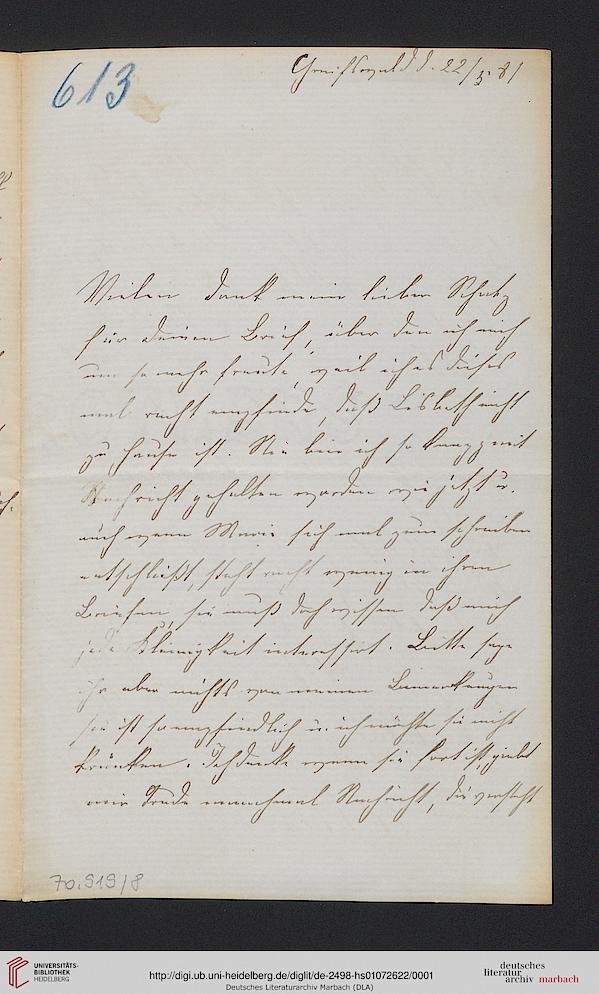 613
Greifswald d. 22/5. 81
Vielen Dank mein lieber Schatz
für deinen Brief, über den ich mich
um so mehr freute, weil ich es dieses
mal recht empfinde, daß Lisbeth nicht
zu Hause ist. Nie bin ich so knapp mit
Nachricht gehalten worden wie jetzt u.
auch wenn Marie sich mal zum schreiben
entschließt, steht recht wenig in ihren
Briefen, sie muß doch wissen daß mich
jede Kleinigkeit interessirt. Bitte sage
ihr aber nichts von meinen Bemerkungen
sie ist so empfindlich u. ich möchte sie nicht
kränken. Ich denke wenn sie fort ist, giebt
mir manchmal Nachricht, die versteht
70.919/8
UNIVERSITÄTS-
BIBLIOTHEK
HEIDELBERG
http://digi.ub.uni-heidelberg.de/diglit/de-2498-hs01072622/0001
Deutsches Literaturarchiv Marbach (DLA)
deutsches
literatur
archiv marbach